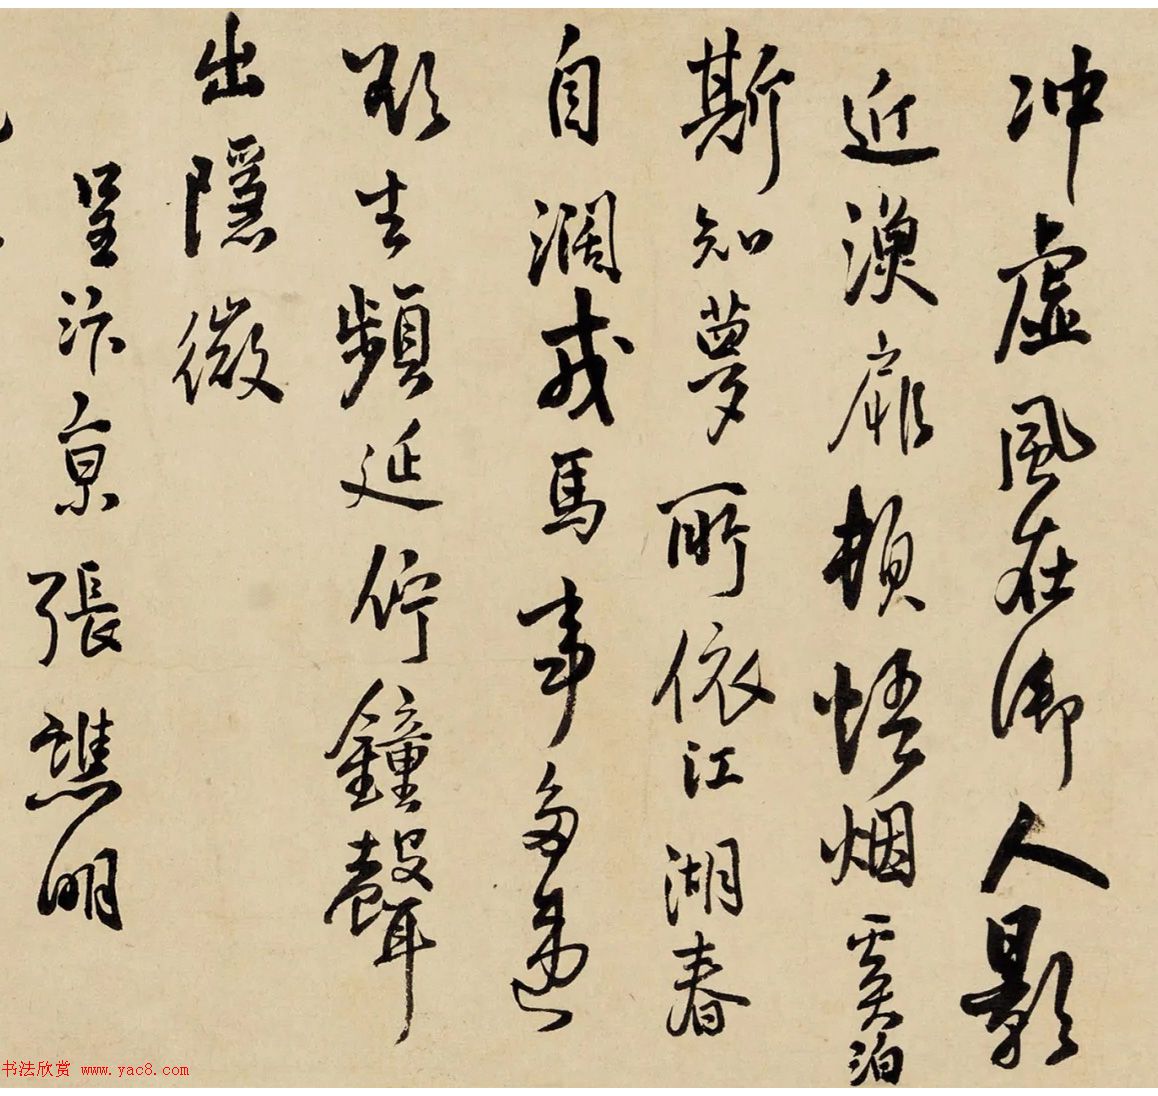 冲虚風在御人影
近漁扉頓悟烟霞泊
斯知夢所依江湖春
自濶戎馬事多違
歇生頻延佇鐘聲
出隱微
呈汴京張譙明
书法欣赏 www.yac8.com